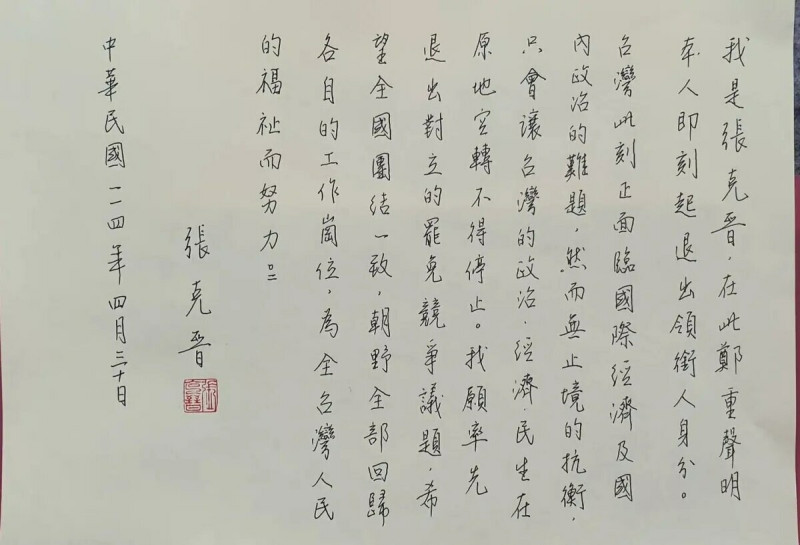 我是張克晉，在此鄭重聲明
本人即刻起退出領銜人身分。
台灣此刻正面臨國際經濟及國
內政治的難題，然而無止境的抗衡，
只會讓台灣的政治，經濟，民生在
原地空轉不得停止。我願率先
退出對立的罷免競爭議題，希
望全國團結一致，朝野全部回歸
各自的工作崗位，為全台灣人民
的福祉而努力。
張克晉
中華民國一一四年四月三十日